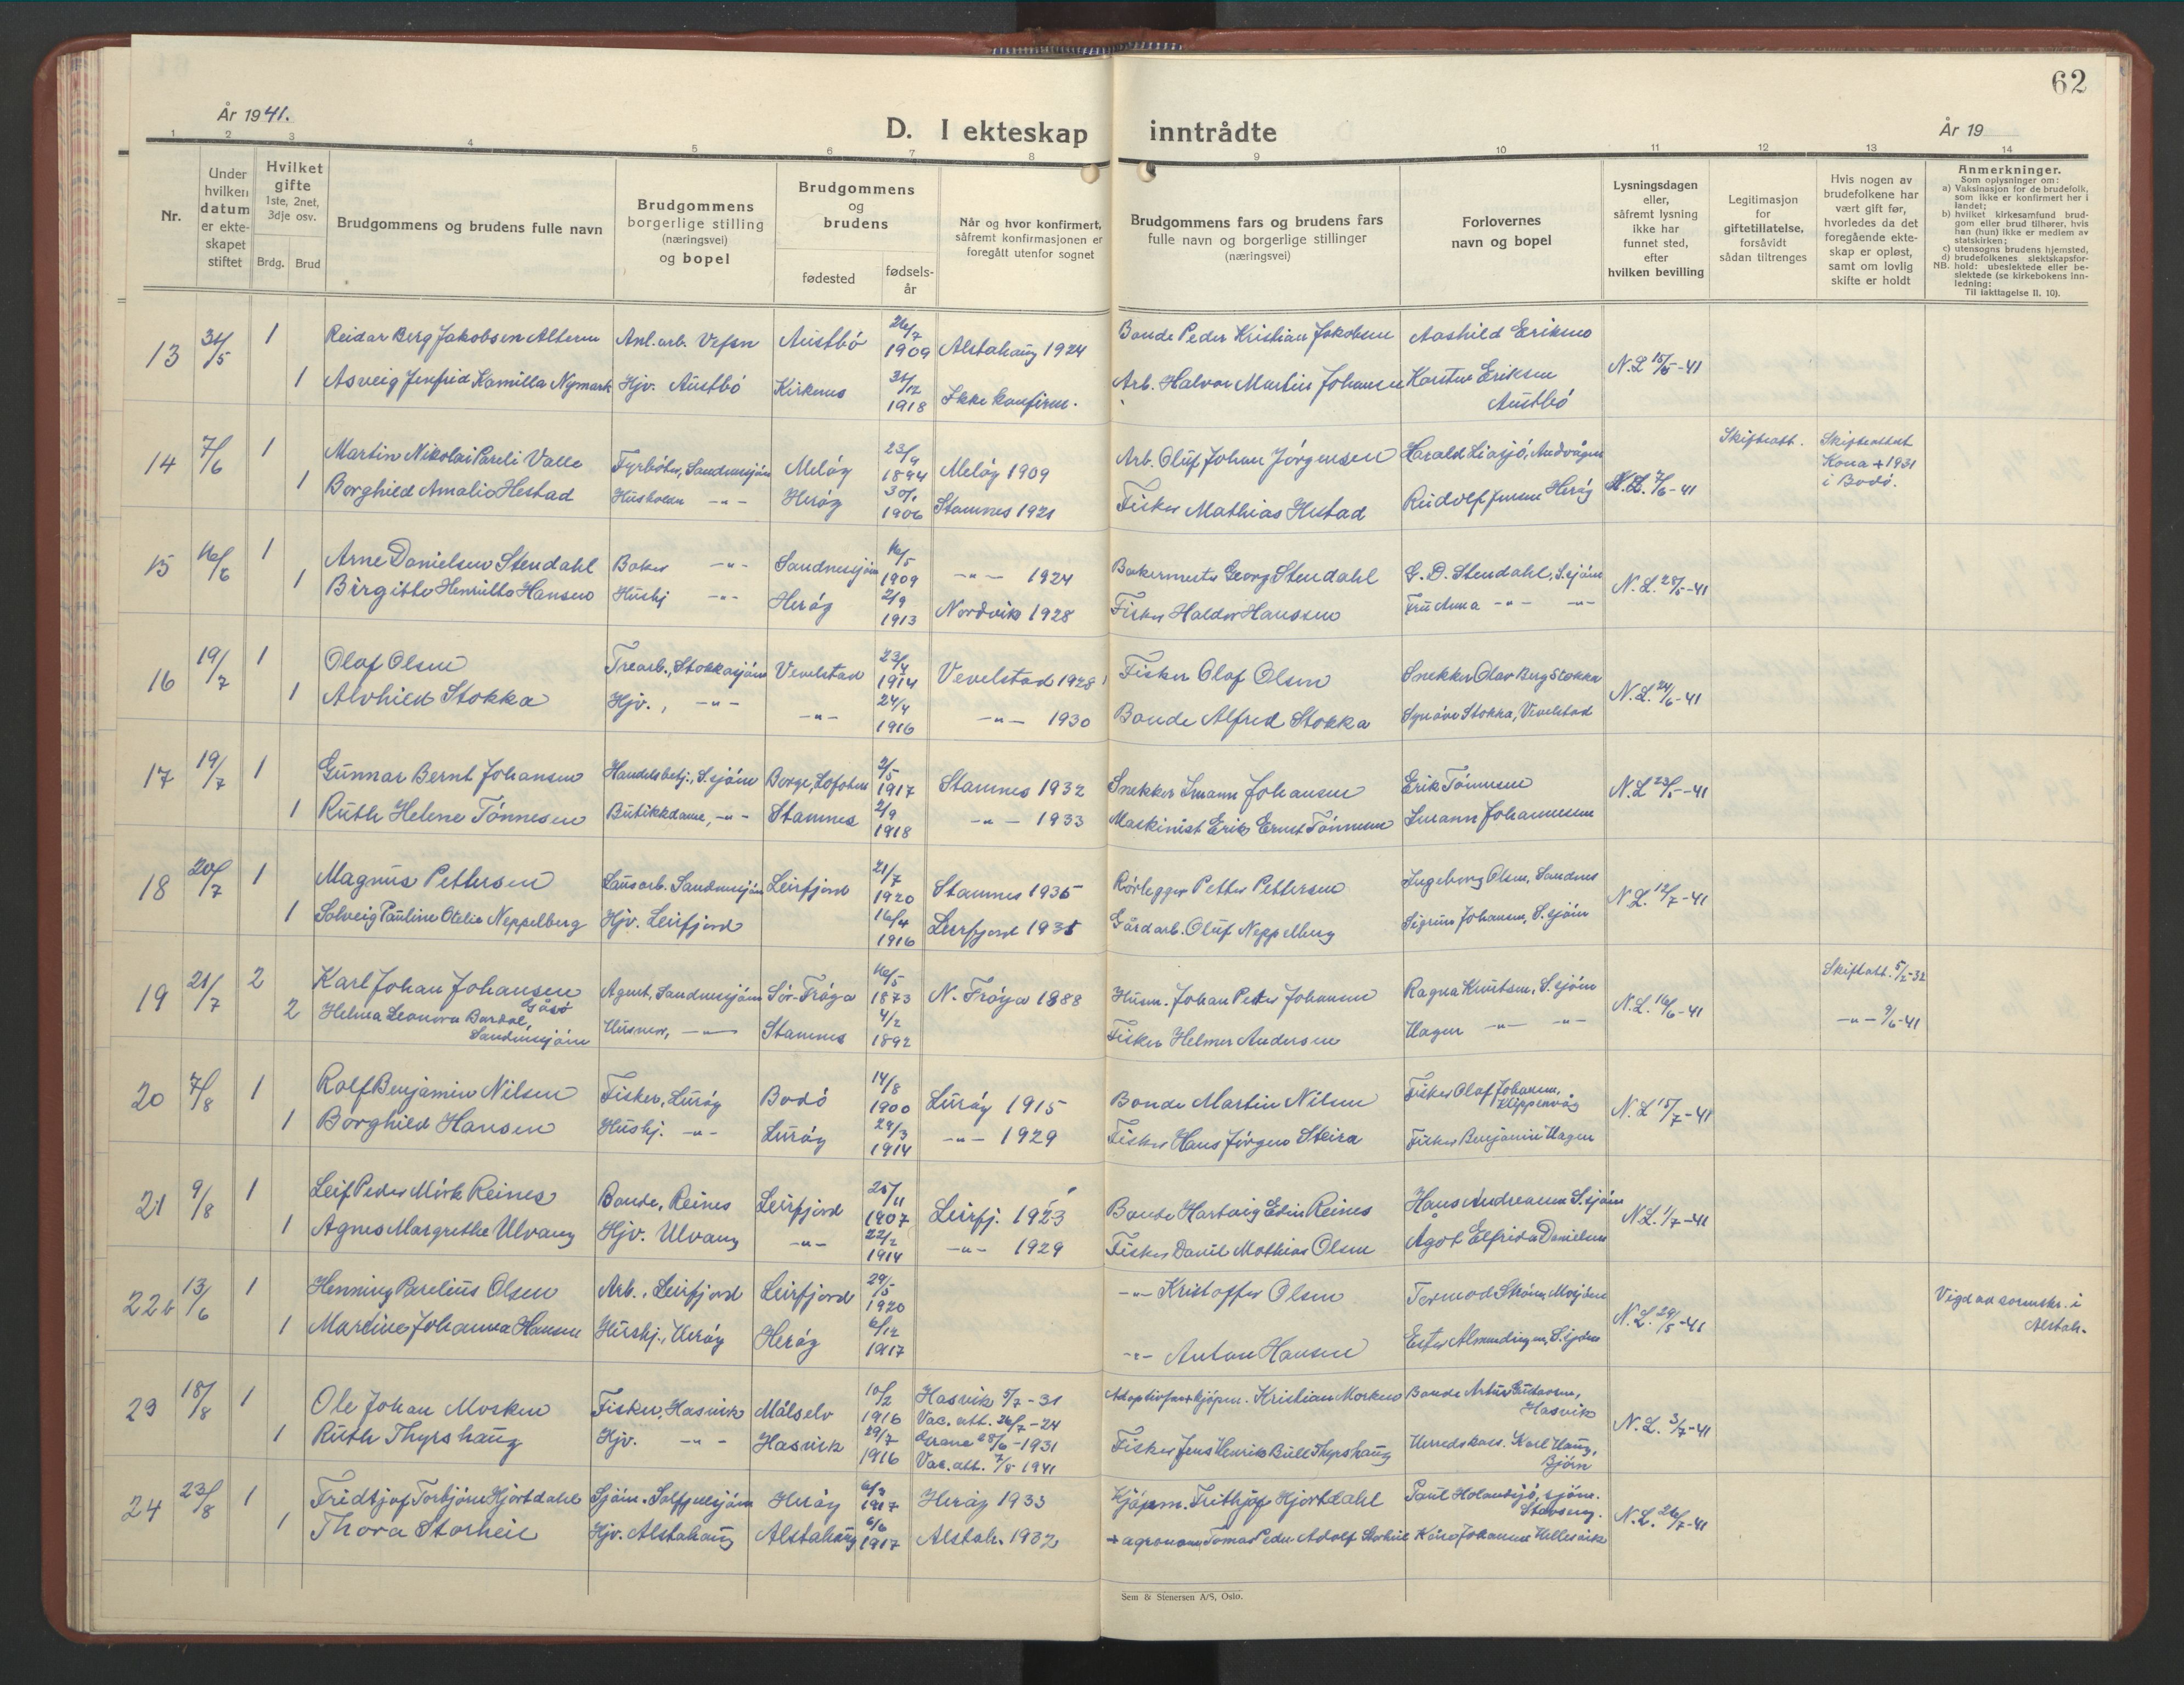 62
År 1941.
D. I ekteskap inntrådte
År 19
1 2 3 4 5 6 7 8 9 10 11 12 13 14
Nr.
Under hvilken datum er ekteskapet stiftet
Hvilket gifte 1ste, 2net, 3dje osv.
Brdg. Brud
Brudgommens og brudens fulle navn
Brudgommens borgerlige stilling (næringsvei) og bopel
Brudgommens og brudens
fødested
fødselsår
Når og hvor konfirmert, såfremt konfirmasjonen er foregått utenfor sognet
Brudgommens fars og brudens fars fulle navn og borgerlige stillinger (næringsvei)
Forlovernes navn og bopel
Lysningsdagen eller, såfremt lysning ikke har funnet sted, efter hvilken bevilling
Legitimasjon for giftetillatelse, forsåvidt sådan tiltrenges
Hvis nogen av brudefolkene har vært gift før, hvorledes da det foregående ekteskap er opløst, samt om lovlig skifte er holdt
Anmerkninger.
Som oplysninger om:
a) Vaksinasjon for de brudefolk, som ikke er konfirmert her i landet;
b) hvilket kirkesamfund brudgom eller brud tilhører, hvis han (hun) ikke er medlem av statskirken;
c) utensogns brudens hjemsted,
d) brudefolkenes slektskapsforhold: ubeslektede eller beslektede (se kirkebokens innledning:
NB. Til iakttagelse II. 10).
13 31/5 1 Reidar Berg Jakobsen Alteren Anl.arb. Vefsn Austbø 26/7 1909 Alstahaug 1924 Bonde Peder Kristian Jakobsen Aashild Eriksen
1 Asveig Jenfrid Kamilla Nymark Hjv. Austbø Kirkenes 31/12 1918 Ikke konfirm. Arb. Halvor Martin Johansen Karsten Eriksen Austbø N.L. 15/5-41
14 7/6 1 Martin Nikolai Pareli Valle Fyrbøter, Sandnessjøen Meløy 23/9 1894 Meløy 1909 Arb. Oluf Johan Jørgensen Harald Liasjø, Skifteatt. Skifteattest Kona + 1931 i Bodø.
1 Borghild Amalie Hestad Husholdn. -"- Herøy 30/1 1906 Stamnes 1921 Fisker Mathias Hestad Rudolf Jensen Herøy N.L. 7/6-41
15 16/6 1 Arne Danielsen Stendahl Baker -"- Sandnessjøen 16/5 1909 -"- 1924 Bakermester Georg Stendahl G. D. Stendahl, S.sjøen
1 Birgitte Henritte Hansen Hushj -"- Herøy 2/9 1913 Nordvik 1928 Fisker Haldor Hanssen Fru Anna -"- -"- N.L. 28/5-41
16 19/7 1 Olaf Olsen Trearb., Stokkasjøen Vevelstad 23/4 1914 Vevelstad 1928 Fisker Olaf Olsen Snekker Olav Berg Stokka
1 Alvhild Stokka Hjv., -"- -"- 24/4 1916 -"- 1930 Bonde Alfred Stokka Synøve Stokka, Vevelstad N.L. 24/6-41
17 19/7 1 Gunnar Bernt Johansen Handelsbetj., S.sjøen Borge, Lofoten 2/5 1917 Stamnes 1932 Snekker Johansen Erik Tønnesen
1 Ruth Helene Tønnesen Butikkdame, -"- Stamnes 2/9 1918 -"- 1933 Maskinist Erik Ernst Tønnesen Johannesen N.L. 23/5-41
18 20/7 1 Magnus Pettersen Lausarb. Sandnessjøen Leirfjord 21/7 1920 Stamnes 1935 Rørlegger Petter Pettersen Ingeborg Olsen, Sandnes
1 Solveig Pauline Otelie Neppelberg Hjv. Leirfjord 16/4 1916 Leirfjord 1931 Gårdarb. Oluf Neppelberg Sigrun Johansen, S.sjøen N.L. 12/7-41
19 21/7 2 Karl Johan Johansen Gåsø Agent, Sandnessjøen Sør-Frøya 16/5 1873 N. Frøya 1888 Husm. Johan Peter Johansen Ragna Knutsen, S.sjøen Skifteatt. 5/2-32
2 Helma Leonora Bardal, Sandnessjøen Husmor, -"- Stamnes 4/2 1892 Fisker Helmer Andersen Hagen -"- -"- N.L. 16/6-41 -"- 9/6-41
20 7/8 1 Rolf Benjamin Nilsen Fisker, Lurøy Bodø 14/8 1900 Lurøy 1915 Bonde Martin Nilsen Fisker Olaf Johansen, Klippenvåg
1 Borghild Hansen Hushj. -"- Lurøy 29/3 1914 -"- 1929 Fisker Hans Jørgen Steira Fisker Benjamin Hagen N.L. 15/7-41
21 9/8 1 Leif Peder Mørk Reines Bonde, Reines Leirfjord 25/11 1907 Leirfj. 1923 Bonde Hartvig Edin Reines Hans Andreassen S.sjøen
1 Agnes Margrethe Ulvang Hjv. Ulvang -"- 22/2 1914 -"- 1929 Fisker Daniel Mathias Olsen Ågot Elfrida Danielsen N.L. 1/7-41
22b 13/6 1 Henning Parelius Olsen Arb., Leirfjord Leirfjord 29/5 1920 -"- Kristoffer Olsen Tormod Mosjøen Vigd av sorenskr. i Alstah.
1 Martine Johanna Hansen Hushj., Herøy Herøy 6/12 1917 -"- Anton Hansen Ester Almendingen, S.sjøen N.L. 29/5-41
23 18/8 1 Ole Johan Morken Fisker, Hasvik Målselv 10/2 1916 Hasvik 5/7-31 Vac. att. 26/7-24 Adoptivfar + kjøpm. Kristian Morken Bonde Artur Gustavsen, Hasvik
1 Ruth Thyrshaug Hjv. -"- Hasvik 29/7 1916 28/6-1931 Vac. att. 7/8 1941 Fisker Jens Henrik Bull Thyrshaug Herredskass. Karl Haug, Bjørn N.L. 3/7-41
24 23/8 1 Fridtjof Torbjørn Hjortdahl Sjøm. Herøy 6/3 1917 Herøy 1933 Kjøpm. Frithjof Hjortdahl Paul Holandsjø, sjøm. Stavseng.
1 Thora Storheil Hjv. Alstahaug Alstahaug 6/6 1917 Alstah. 1932 + agronom Tomas Peder Adolf Storheil Kåre Johannes Hellesvik N.L. 26/7-41
Sem & Stenersen A/S, Oslo.